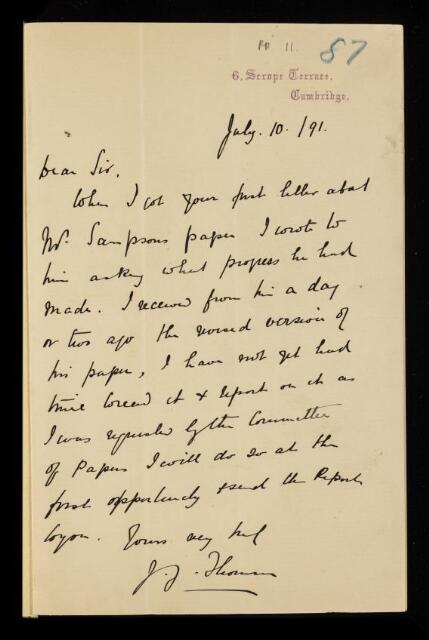 11
87
6. Scrope Terrace.
Cambridge.
July. 10. /91.
Dear Sir,
When I got your first letter about
Mr. Sampsons paper I wrote to
him asking what progress he had
made. I received from him a day
or two ago the revised version of
his paper, I have not yet had
time to read it & report on it as
I was requested by the Committee
of Papers I will do so at the
first opportunity & send the Report
to you. Yours very truly
J.J. Thomson